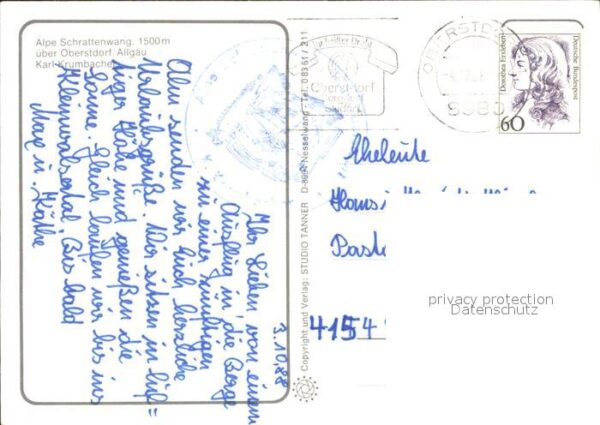 Alpe Schrattenwang, 1500 m
über Oberstdorf/Allgäu
Karl Krumbacher
3.10.88
Ihr Lieben, von einem
Ausflug in die Berge
zu einer zünftigen
Alm senden wir Euch herzliche
Urlaubsgrüße. Wir sitzen in luf=
tiger Höhe und genießen die
Sonne. Gleich laufen wir bis ins
Kleinwalsertal. Bis bald
Max u. Käthe
© Copyright und Verlag: STUDIO TANNER D-8964 Nesselwang - Tel. 08361/211
Oberstdorf
OBERSTDORF
8980
Dorothea Erxleben
Deutsche Bundespost
60
Eheleute
Hans
4154
privacy protection
Datenschutz